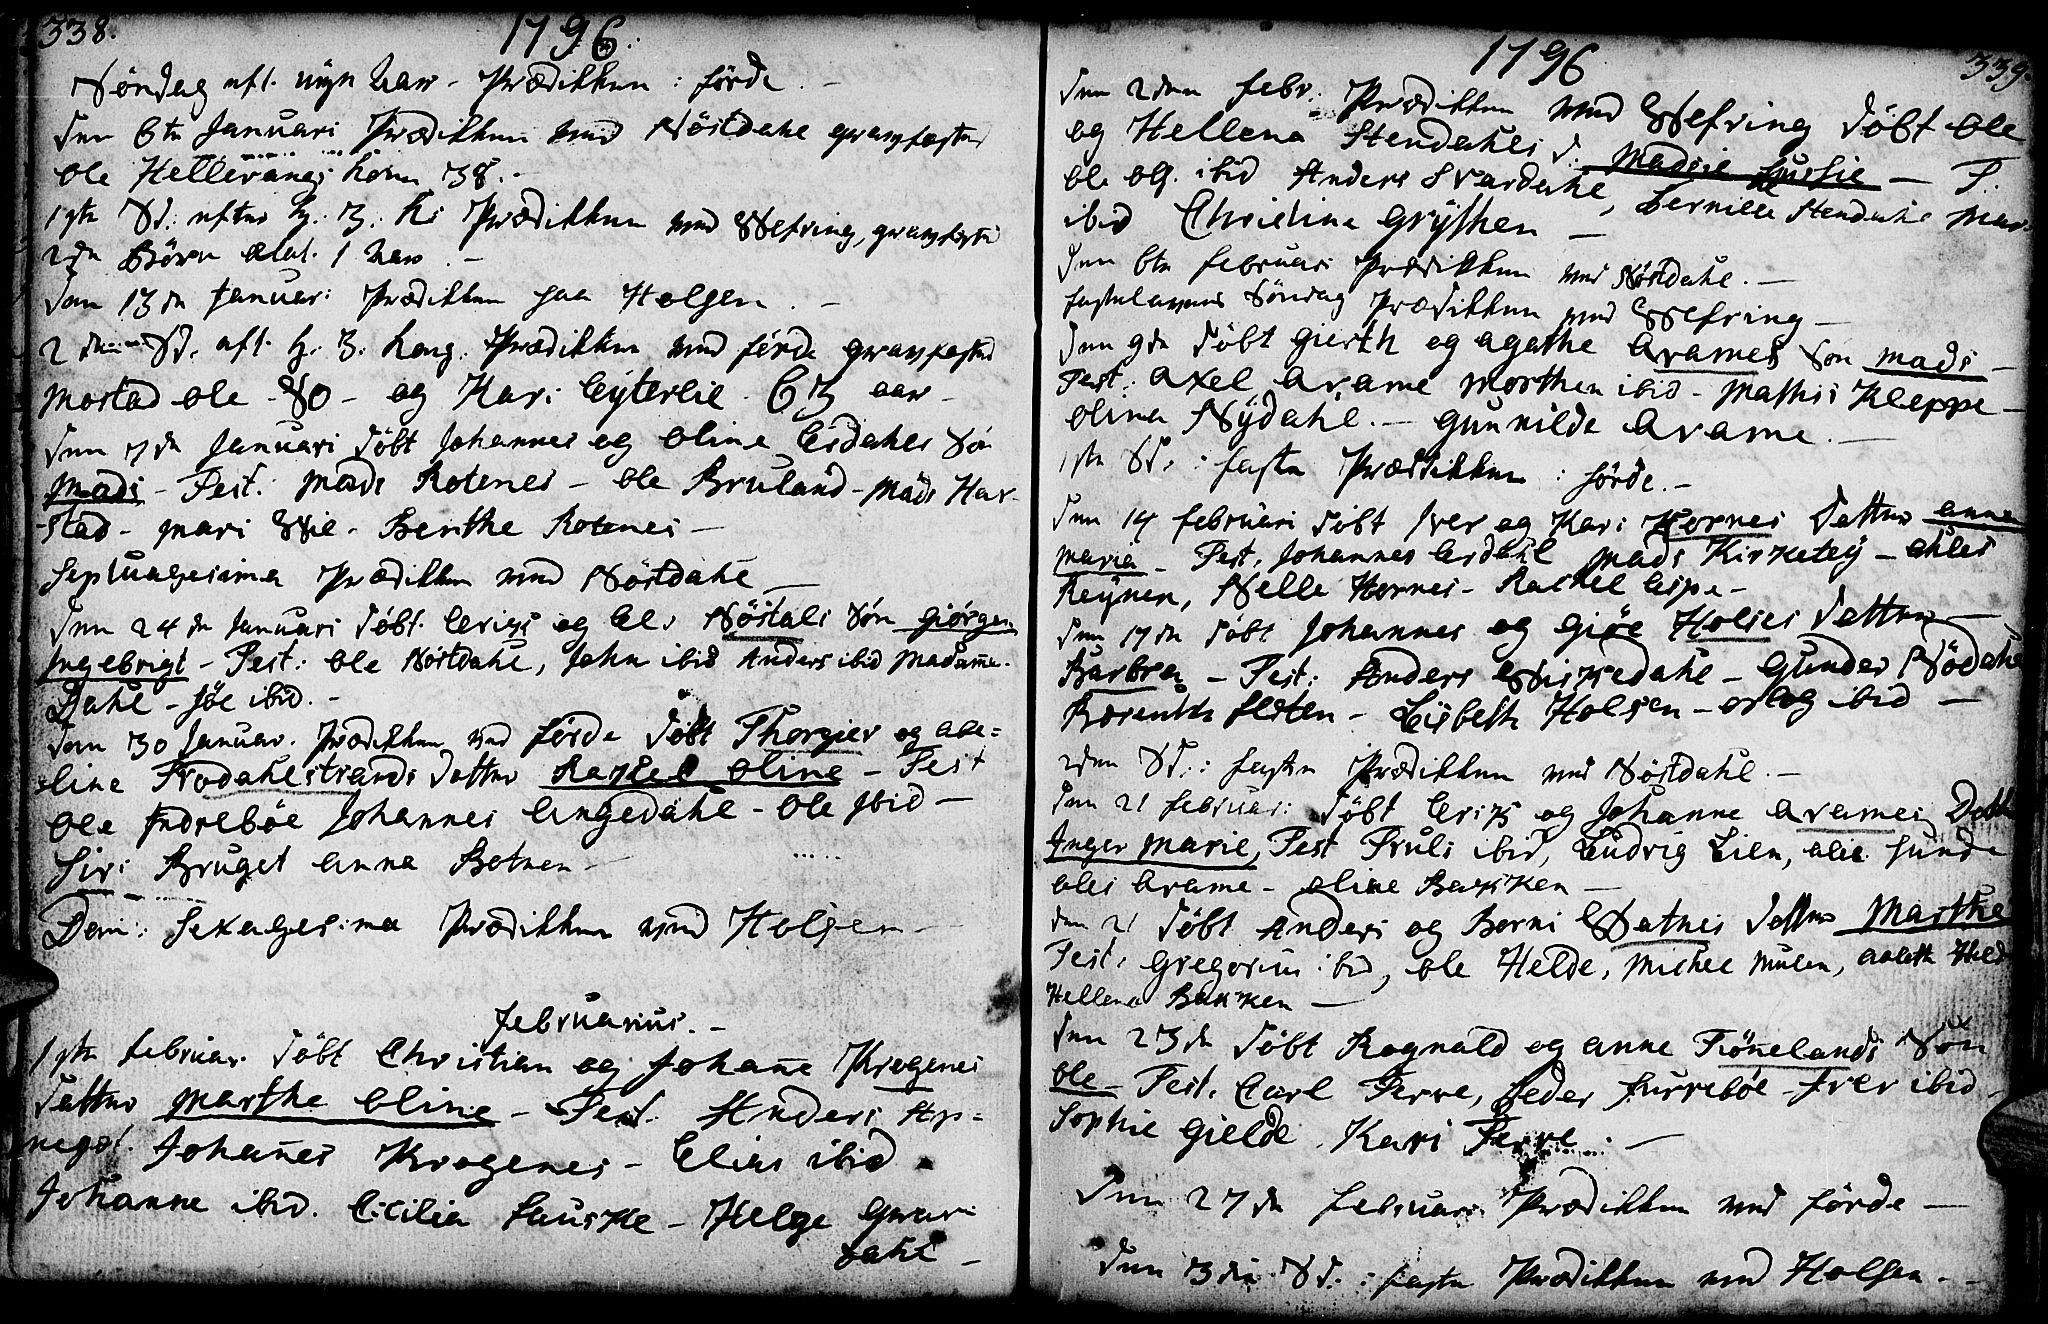 338.
1796.
Søndag eft. nyt aar. Prædikken i førde. -
den 6te Januari Prædikken ved Nøstdahl gravfæstes
ole Hellevangs barn 38. -
1ste Sd: efter h. 3. K: Prædikken ved Wefring, gravfæste
2de Børn ælat. 1 aar. -
den 13de Januari Prædikken paa Holsen. -
2den Sd. eft. h. 3. Kong. Prædikken ved førde gravfæstes
Mostad ole 80 - og Kari Eyterlie 63 aar -
den 17de Januari døbt Johannes og Oline Erdahls Søn
Mads - Test: Mads Rotenes - ole Bruland - Mads Har-
stad - Mari Wie - Berthe Rotenes -
Septuagesima Prædikken ved Nøstdahl -
den 24de Januari døbt Erich og El. Nøstdals Søn Giørgen
Ingebrigt - Test: ole Nøstdahl, John ibid Anders ibid Madame.
Dahl - Siøe ibid. -
den 30 Januar. Prædikken ved førde døbt Thorgier og abe=
line Frodahlstrands datter Rachel oline - Test
Ole Indrebøe Johannes Engedahl - Ole Ibid -
Siri Bruget Anna Botnen -
Dom: Sexagesima Prædikken ved Holsen -
februarius. -
1ste februar. døbt Christian og Johanne Krogenes
datter Marthe Oline - Test. Anders Hp=
negd. Johannes Krogenes - Elias ibid
Johanne ibid. Cicilia Sauske - Helge Gravi
dahl -
1796
339.
den 2den febr. Prædikken ved Wefring døbt ole
og Hellena Stendahls d. Madsie Lussie - T.
ole ols. ibid Anders Svardahl, Pernille Stendahl Mar.
ibid Christina Grythen -
den 6te februari Prædikken ved Nøstdahl. -
fastelavens Søndag Prædikken ved Wefring -
den 9de døbt Gierth og Agathe Arames Søn Mads -
Test: Axel Arame Morthen ibid - Mathis Kleppe -
Olina Nydahl. - Gunnilde Arame. -
1ste Sd. i faste Prædikken i førde. -
den 14 februari døbt Iver og Kari Hornes datter Anna
Maria - Test. Johannes Erdahl Mads Kirketey - ahles
Reynen, Nelle Hornes - Rachel Espe -
den 17de døbt Johannes og Giøe Holses datter -
Barbra - Test: Anders Wissedahl - Gunder Nødahl
Flaten - Lisbeth Holsen - ibid -
2den Sd. i faste Prædikken ved Nøstdahl. -
den 21 februari døbt Erich og Johanne Arames Datt
Inger Marie, Test Truls ibid, Ludvig Lien, Sunde
oles Arame - Oline Backen -
den 21 døbt Anders og Berni Watnes datter Marthe
Test. Gregorius ibid, ole Helde, Michel Mulen, Helde
Hellena Bakken -
den 23de døbt Rognald og Anne Tiønnelands Søn
Ole - Test. Carl Ferre, Peder Furrebøe - Iver ibid
Sophie Gielde Kari Ferre. -
den 27de februari Prædikken ved førde -
den 3die Sd. i faste Prædikken ved Holsen. -